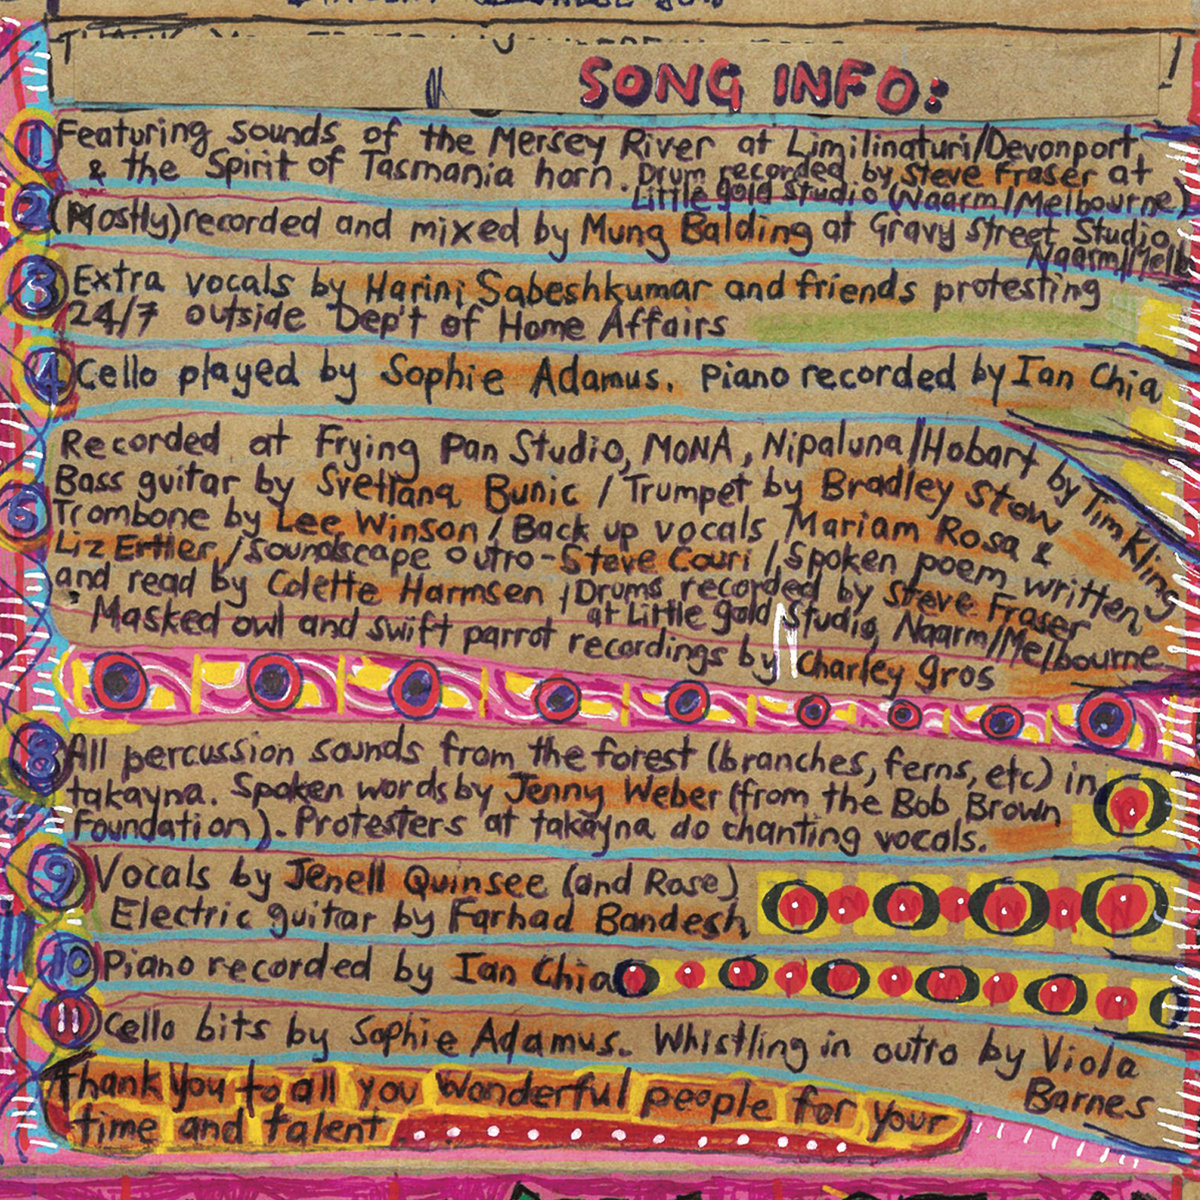 SONG INFO:
1 Featuring sounds of the Mersey River at Limilinaturi/Devonport
& the Spirit of Tasmania horn. Drum recorded by Steve Fraser at
Little Gold Studio (Naarm/Melbourne)
2 (Mostly) recorded and mixed by Mung Balding at Gravy Street Studio,
Naarm/Melb
3 Extra vocals by Harini Sabeshkumar and friends protesting
24/7 outside Dep't of Home Affairs
4 Cello played by Sophie Adamus. Piano recorded by Ian Chia
Recorded at Frying Pan Studio, MONA, Nipaluna/Hobart by Tim Kling
Bass guitar by Svetlana Bunic / Trumpet by Bradley Stow
6 Trombone by Lee Winson / Back up vocals Mariam Rosa &
Liz Ertler / soundscape outro - Steve Couri / Spoken poem written
and read by Colette Harmsen / Drums recorded by Steve Fraser
at Little Gold Studio, Naarm/Melbourne
Masked owl and swift parrot recordings by Charley Gros
8 All percussion sounds from the forest (branches, ferns, etc) in
takayna. Spoken words by Jenny Weber (from the Bob Brown
Foundation). Protesters at takayna do chanting vocals.
9 Vocals by Jenell Quinsee (and Rose)
Electric guitar by Farhad Bandesh
10 Piano recorded by Ian Chia
11 Cello bits by Sophie Adamus. Whistling in outro by Viola
Barnes
Thank you to all you wonderful people for your
time and talent